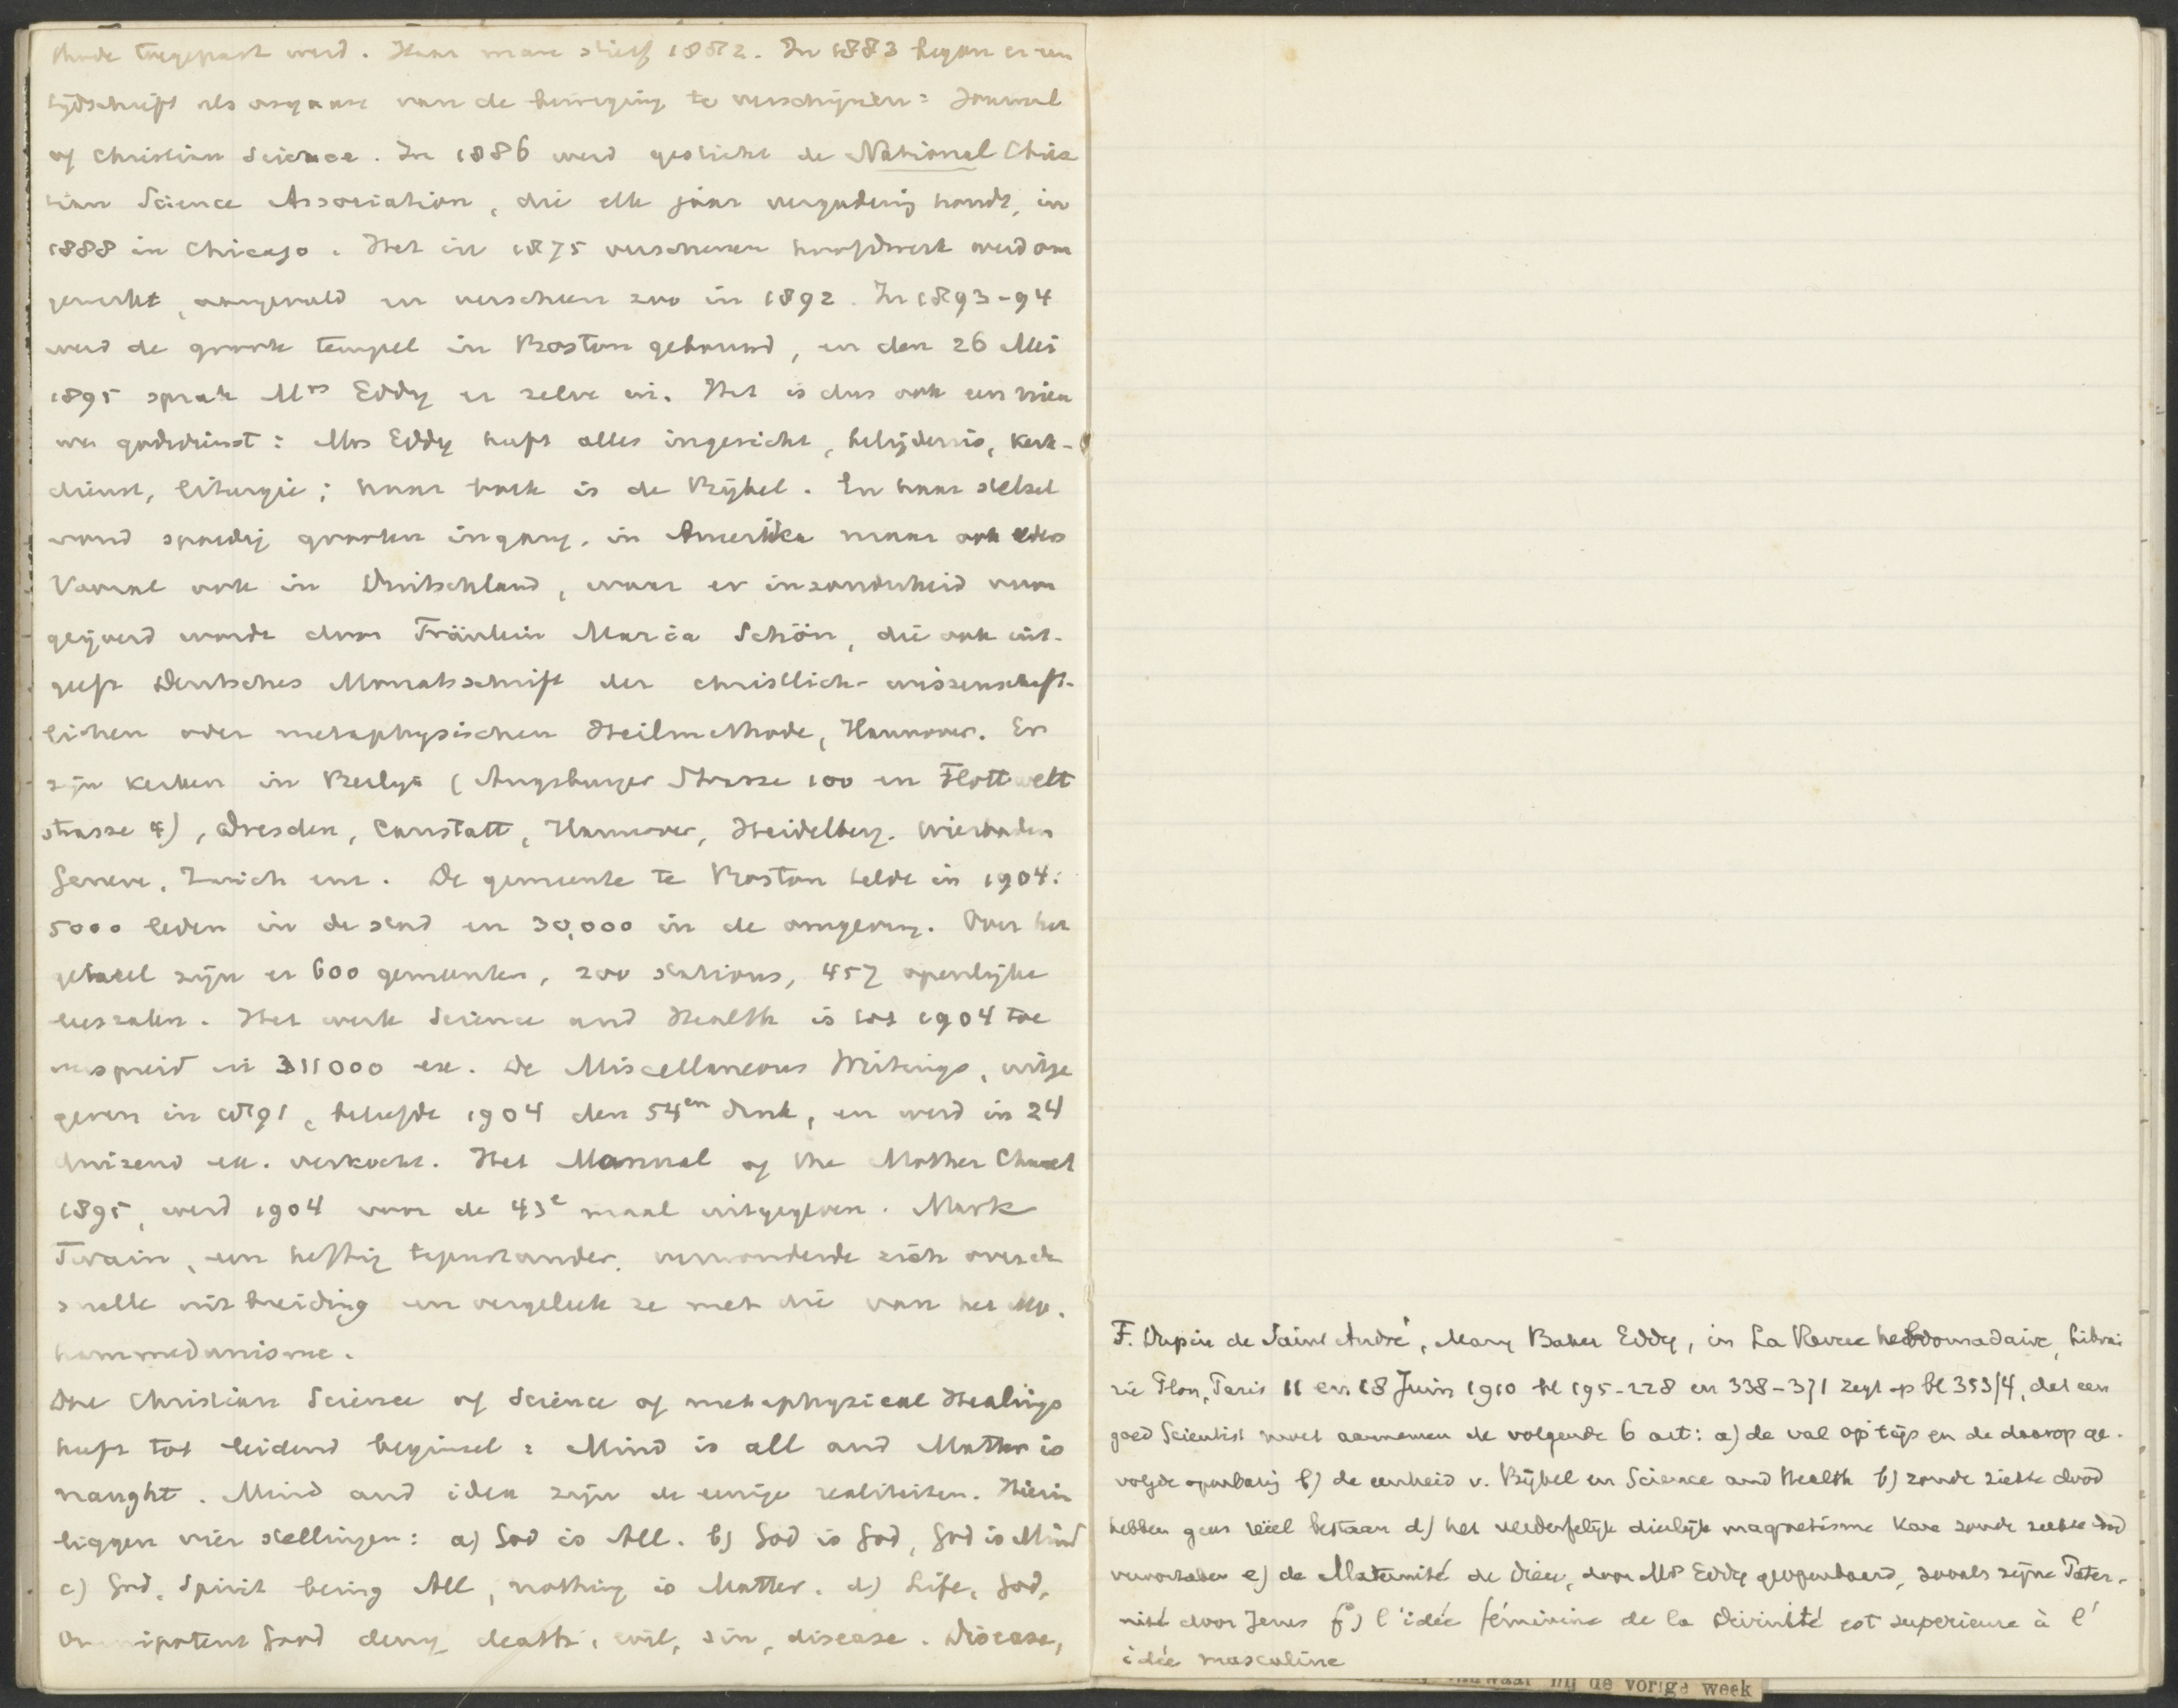 thode toegepast werd. Haar man stierf 1882. In 1883 begon er een
tijdschrift als orgaan van de beweging te verschijnen: Journal
of Christian Science. In 1886 werd gesticht de National Chris
tian Science Association, die elk jaar vergadering houdt, in
1888 in Chicago. Het in 1875 verschenen hoofdwerk werd om
gewerkt, aangevuld en verscheen zoo in 1892. In 1893-94
werd de groote tempel in Boston gebouwd, en den 26 Mei
1895 sprak Mrs Eddy er zelve in. Het is dus ook een nieu
we godsdienst: Mrs Eddy heeft alles ingericht, belijdenis, kerk-
dienst, liturgie; haar boek is de Bijbel. En haar stelsel
vond spoedig grooten ingang, in Amerika maar ook elders
Vooral ook in Duitschland, waar er inzonderheid voor
geijverd wordt door Fräulein Maria Schön, die ook uit-
geeft Deutsches Monatsschrift der christlich-wissenschaft-
lichen oder metaphysischen Heilmethode, Hannover. Er
zijn kerken in Berlijn (Augsburger Strasse 100 en Flottwell
strasse 4), Dresden, Canstatt, Hannover, Heidelberg, Wiesbaden
Geneve, Zurich enz. De gemeente te Boston telde in 1904:
5000 leden in de stad en 30,000 in de omgeving. Over het
geheel zijn er 600 gemeenten, 200 stations, 457 openlijke
leeszalen. Het werk Science and Health is tot 1904 toe
verspreid in 311000 ex. De Miscellaneous Writings, uitge
geven in 1891, beleefde 1904 den 54en druk, en werd in 24
duizend ex. verkocht. Het Manual of the Mother Church
1895, werd 1904 voor de 43e maal uitgegeven. Mark
Twain, een heftig tegenstander, verwonderde zich over de
snelle uitbreiding en vergeleek ze met die van het Mo.
hammedanisme.
Die Christian Science of Science of metaphysical Healings
heeft tot leidend beginsel: Mind is all and Matter is
naught. Mind and idea zijn de eenige realiteiten. Hierin
liggen vier stellingen: a) God is All. b) God is Good, God is Mind
c) God, Spirit being All, nothing is Matter. d) Life, God,
omnipotent good deny death, evil, sin, disease. Disease,
F. Dupin de Saint André, Mary Baker Eddy, in La Revue hebdomadaire, Librai
rie Plon, Paris 11 en 18 Juin 1910 bl 195-228 en 338-371 zegt op bl 353/4, dat een
goed Scientist moet aannemen de volgende 6 art: a) de val op 't ijs en de daarop ge-
volgde openbaring b) de eenheid v. Bijbel en Science and Health b) zonde ziekte dood
hebben geen reëel bestaan d) het verderfelijk dierlijk magnetisme kan zonde ziekte dood
veroorzaken e) de Maternité de Dieu, door Mrs Eddy geopenbaard, zooals zijne Pater-
nité door Jezus f) l'idée féminine de la Divinité est superieure à l'
idée masculine
hij de vorige week